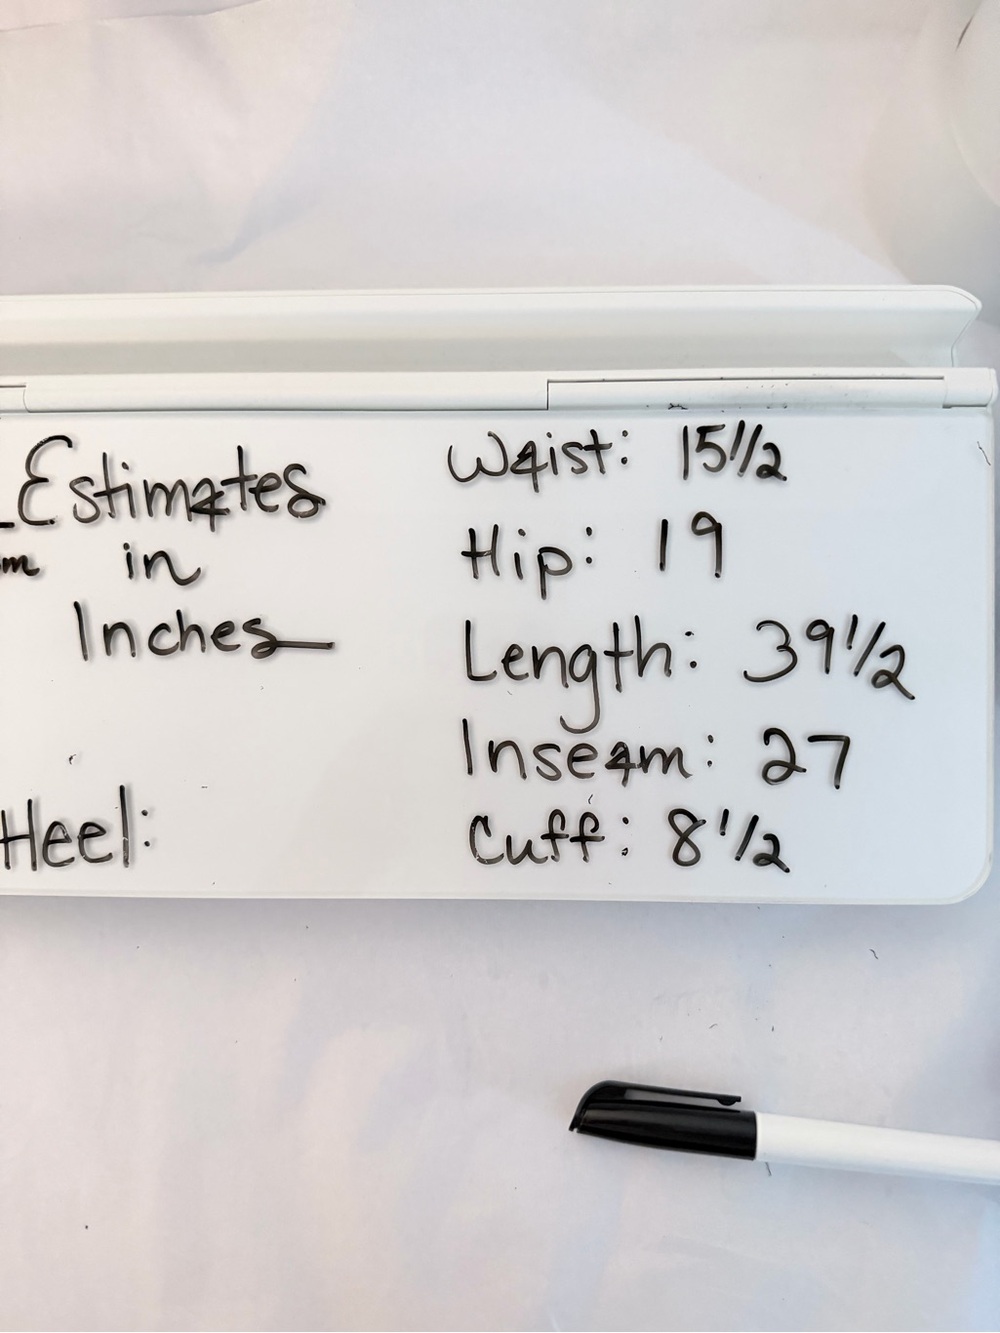 Estimates
in
Inches
Heel:
Waist: 15 1/2
Hip: 19
Length: 39 1/2
Inseam: 27
Cuff: 8 1/2